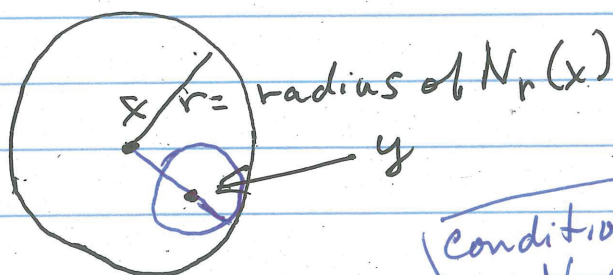 x r = radius of Nr(x)
y
condition